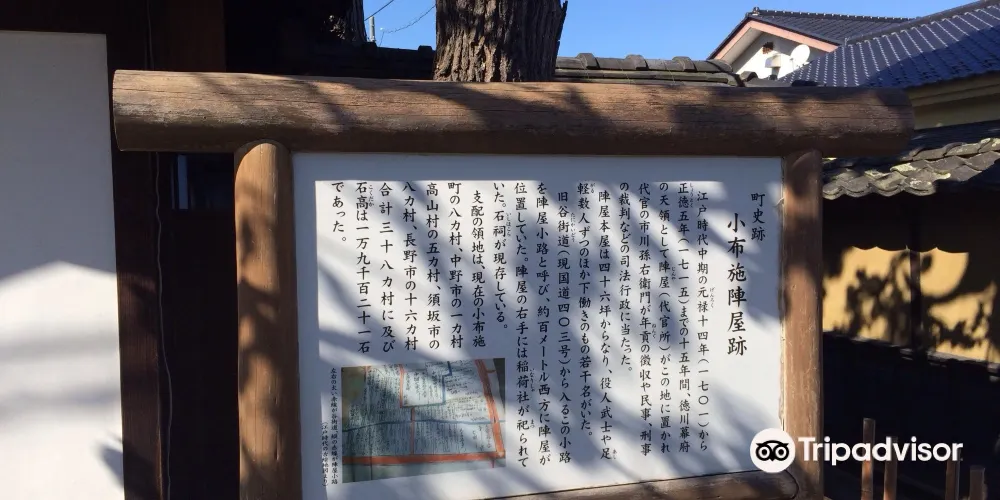 町史跡
小布施陣屋跡
江戸時代中期の元禄十四年（一七〇一）から
正徳五年（一七一五）までの十五年間、徳川幕府
の天領として陣屋（代官所）がこの地に置かれ
代官の市川孫右衛門が年貢の徴収や民事、刑事
の裁判などの司法行政に当たった。
陣屋本屋は四十六坪からなり、役人武士や足
軽数人ずつのほか下働きのもの若干名がいた。
旧谷街道（現国道四〇三号）から入るこの小路
を陣屋小路と呼び、約百メートル西方に陣屋が
位置していた。陣屋の右手には稲荷社が祀られて
いた。石祠が現存している。
支配の領地は、現在の小布施
町の八カ村、中野市の一カ村
高山村の五カ村、須坂市の
八カ村、長野市の十六カ村
合計三十八カ村に及び
石高は一万九千百二十一石
であった。
Tripadvisor